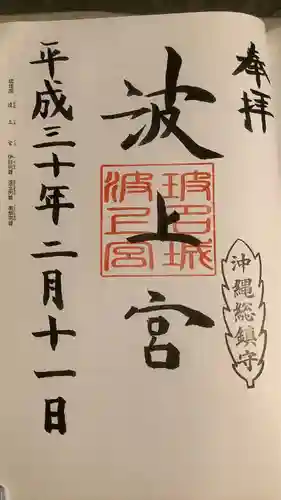 奉拝
沖縄総鎮守
波上宮
平成三十年二月十一日